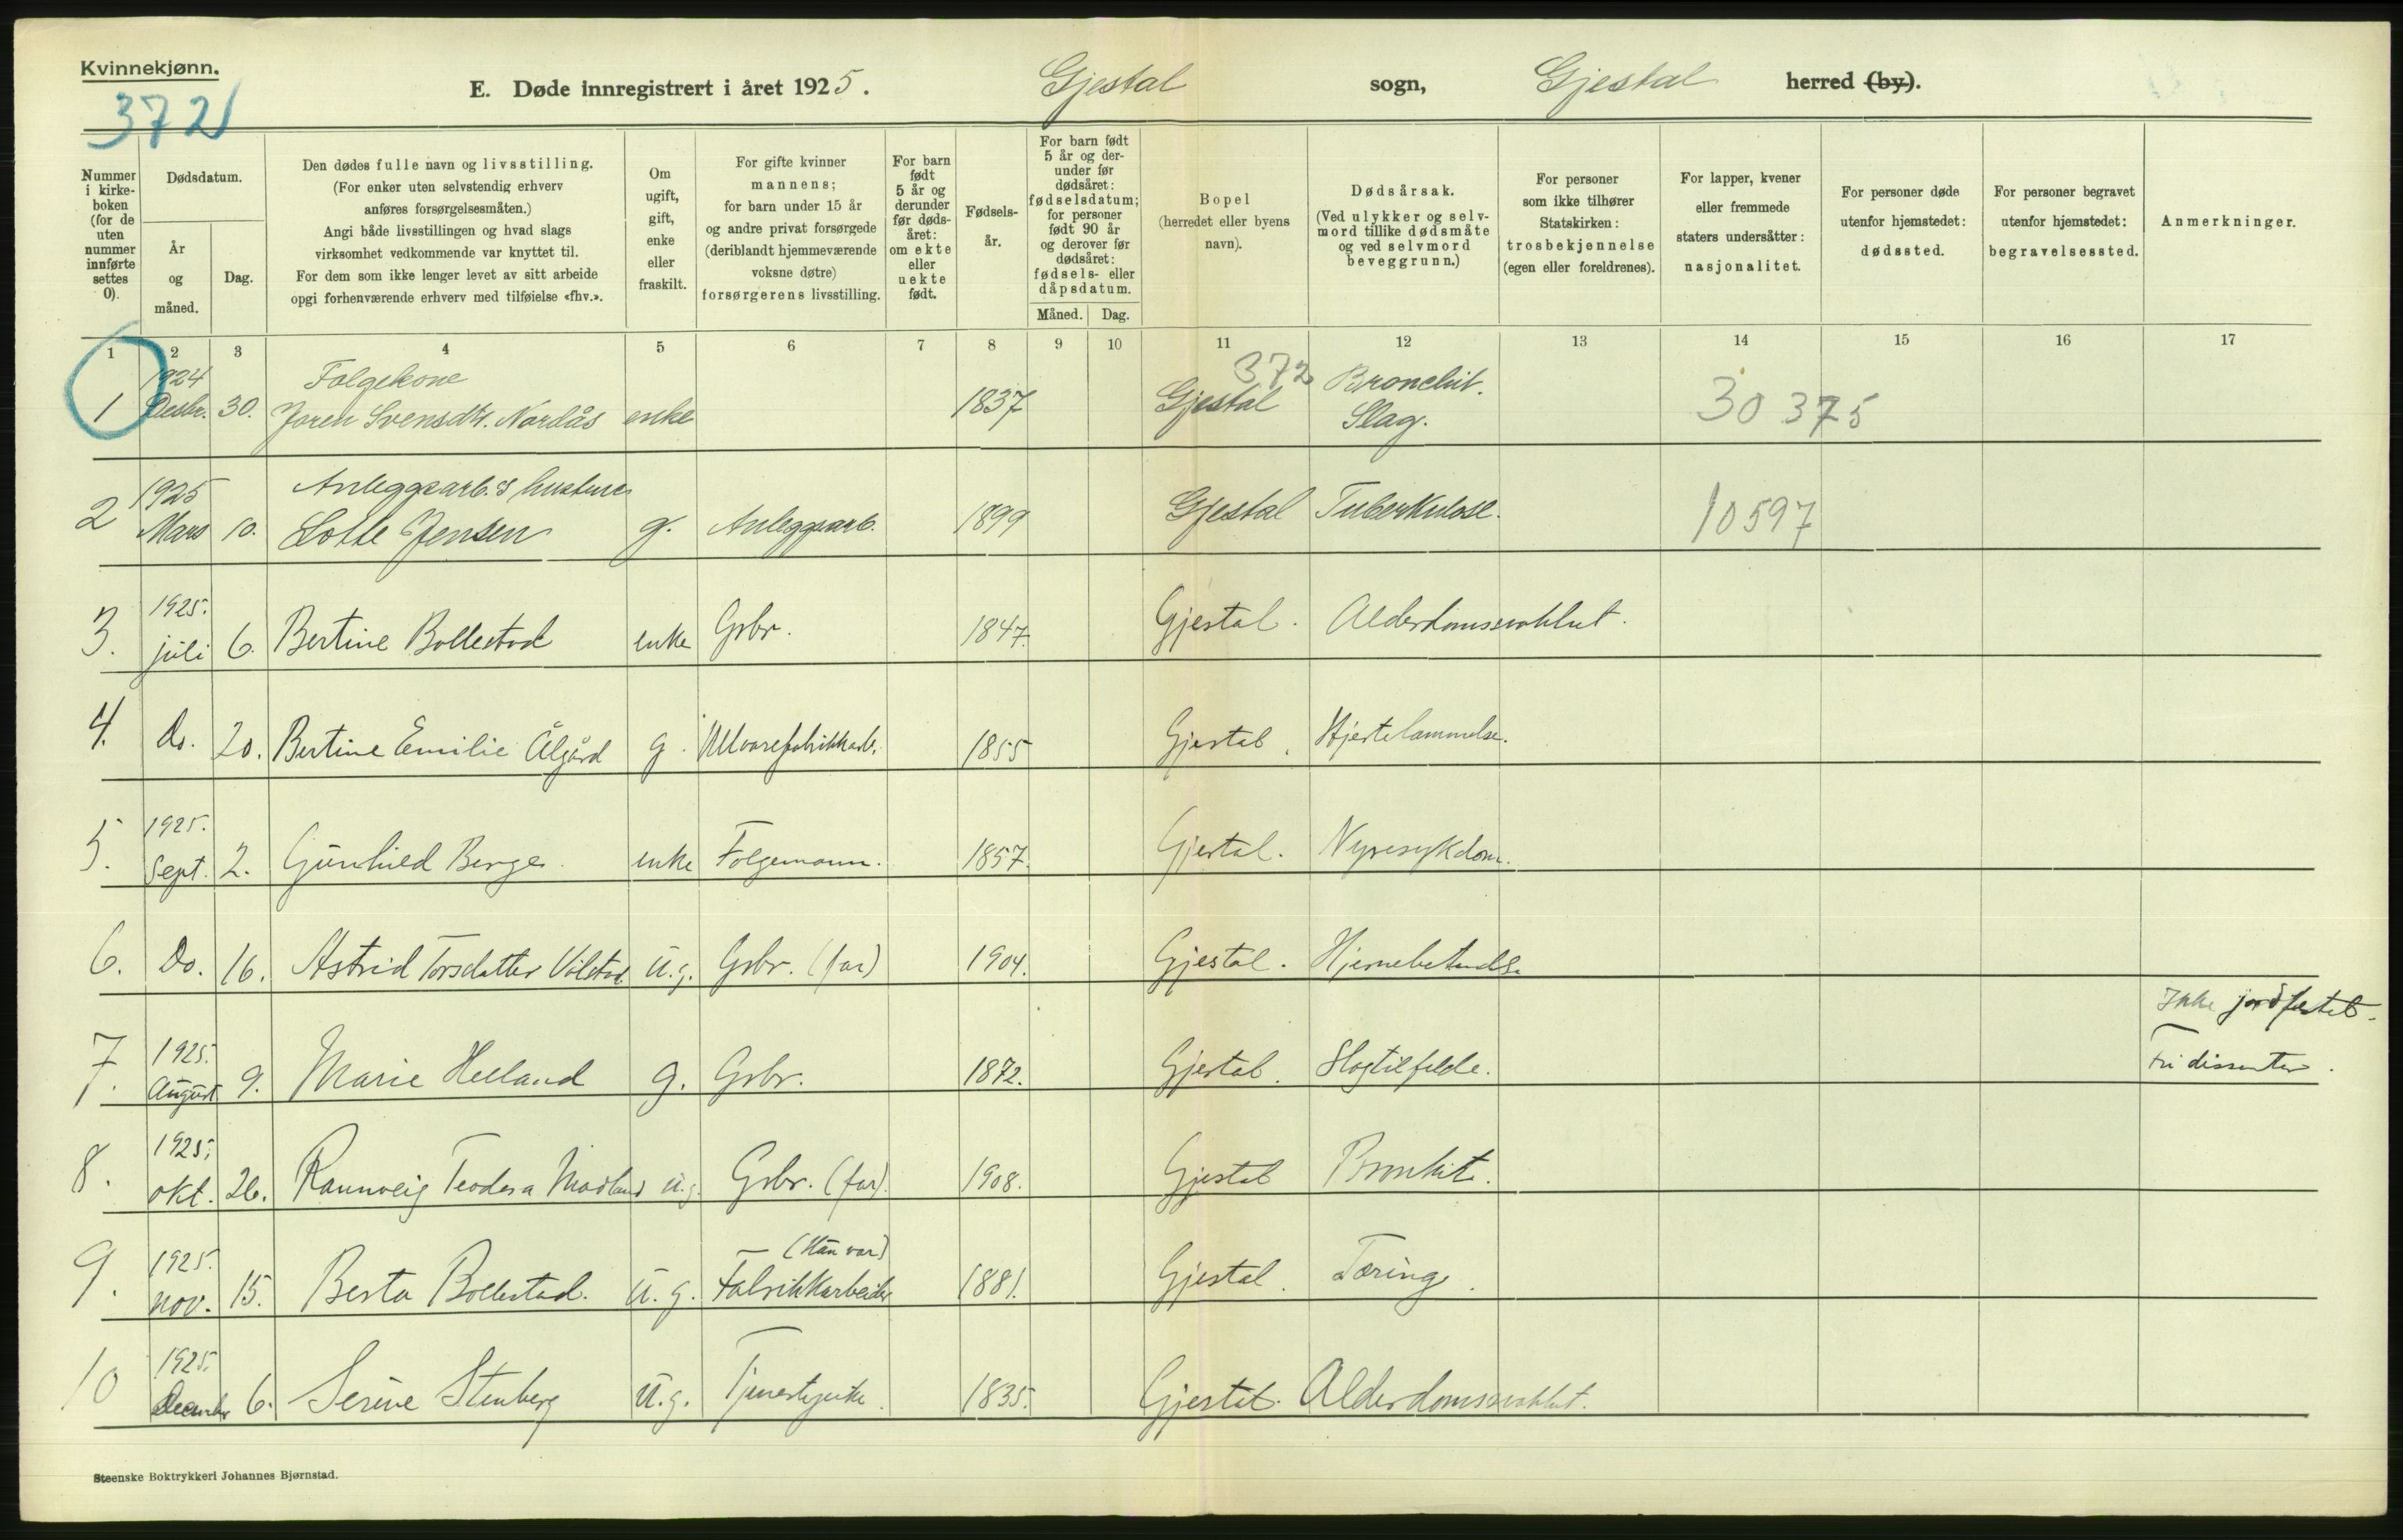 Kvinnekjønn.
372
E. Døde innregistrert i året 1925. Gjestal sogn, Gjestal herred (by).
Nummer i kirkeboken (for de uten nummer innførte settes 0).
Dødsdatum.
År og måned.
Dag.
Den dødes fulle navn og livsstilling.
(For enker uten selvstendig erhverv
anføres forsørgelsesmåten.)
Angi både livsstillingen og hvad slags
virksomhet vedkommende var knyttet til.
For dem som ikke lenger levet av sitt arbeide
opgi forhenværende erhverv med tilføielse «fhv.».
Om ugift, gift, enke eller fraskilt.
For gifte kvinner
mannens;
for barn under 15 år
og andre privat forsørgede
(deriblandt hjemmeværende
voksne døtre)
forsørgerens livsstilling.
For barn født 5 år og derunder før dødsåret: om ekte eller uekte født.
Fødselsår.
For barn født 5 år og derunder før dødsåret: fødselsdatum; for personer født 90 år og derover før dødsåret: fødsels- eller dåpsdatum.
Måned. Dag.
Bopel
(herredet eller byens
navn).
Dødsårsak.
(Ved ulykker og selvmord tillike dødsmåte
og ved selvmord
beveggrunn.)
For personer
som ikke tilhører
Statskirken:
trosbekjennelse
(egen eller foreldrenes).
For lapper, kvener
eller fremmede
staters undersåtter:
nasjonalitet.
For personer døde
utenfor hjemstedet:
dødssted.
For personer begravet
utenfor hjemstedet:
begravelsessted.
Anmerkninger.
1 2 3 4 5 6 7 8 9 10 11 12 13 14 15 16 17
1924 Følgekone 372 Bronchit.
1 Desbr. 30. Joren Svensdtr. Nordås enke 1837 Gjestal Slag. 30 375
1925 Anleggsarb.s hustru
2 Mars 10. Lotte Jensen g. Anleggsarb. 1899 Gjestal Tuberkulose. 10597
1925.
3. juli 6. Bertine Bollestad enke Gsbr. 1847. Gjestal. Alderdomssvakhet.
4. Do. 20. Bertine Emilie Ålgård g. Ullvarefabrikkarb. 1855 Gjestal. Hjertelammelse.
1925.
5. Sept. 2. Gunhild Berge enke Følgemann. 1857. Gjestal. Nyresykdom.
6. Do. 16. Astrid Torsdatter Vølstad u.g. Gsbr. (far) 1904. Gjestal. Hjernebetendelse
Ikke jordfestet.
1925.
7. August 9. Marie Helland g. Gsbr. 1872. Gjestal. Slagtilfelde. Fri dissenter.
1925.
8. okt. 26. Rannveig Teodora Madland u.g. Gsbr. (far). 1908. Gjestal Bronkit.
1925. (Hun var)
9. nov. 15. Berta Bollestad. u.g. Fabrikkarbeider 1881. Gjestal. Tæring.
1925.
10 December 6. Serine Stenberg u.g. Tjenestepike. 1835. Gjestal. Alderdomssvakhet.
Steenske Boktrykkeri Johannes Bjørnstad.